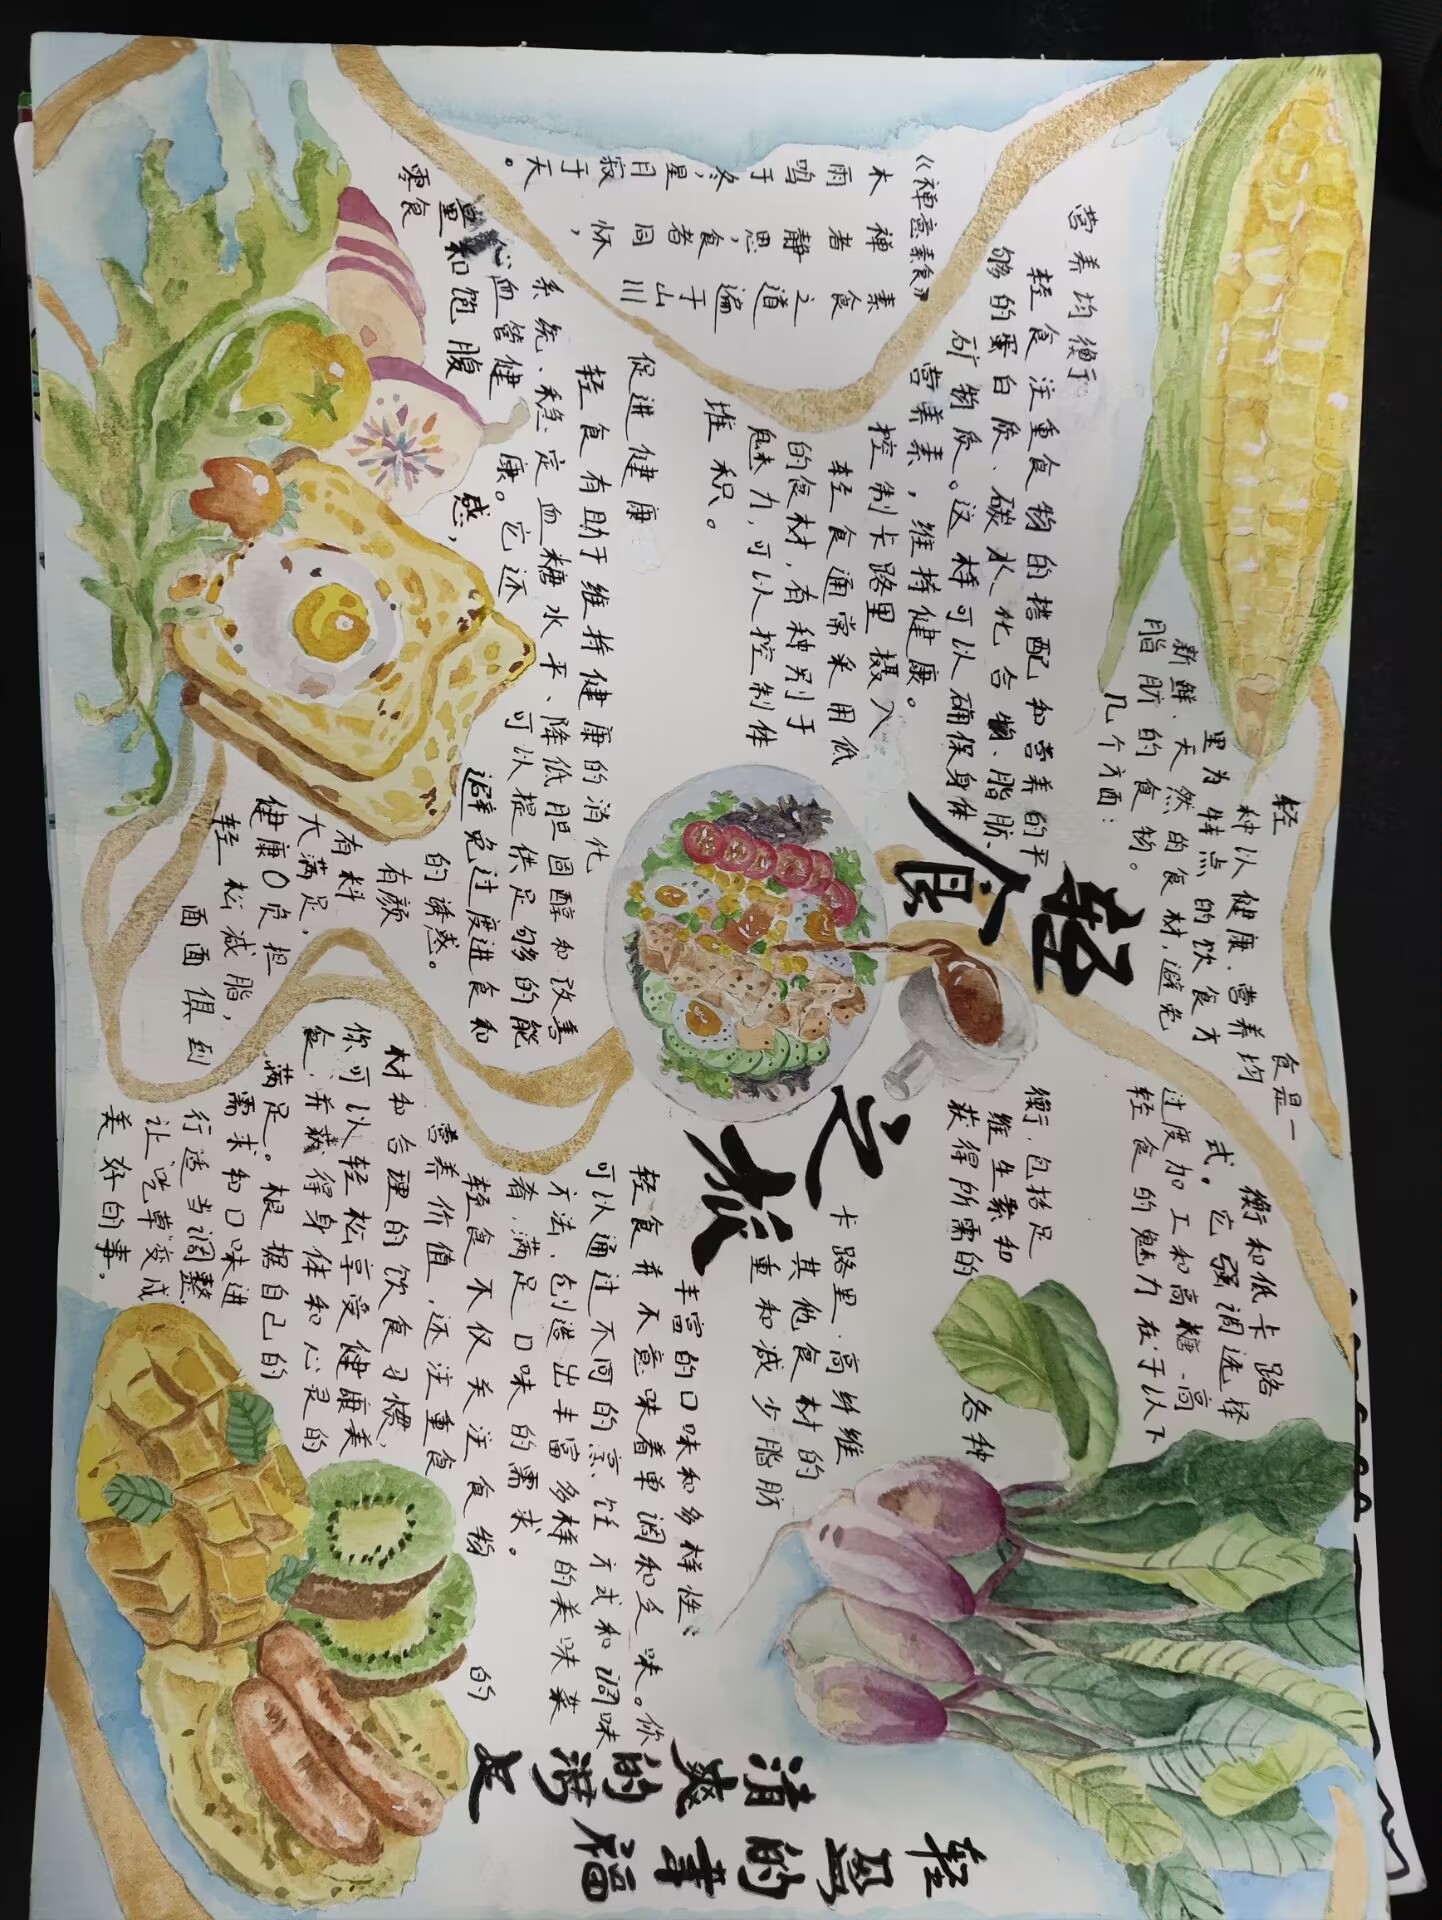 轻食之旅
轻 食是一
种以健康、营养均 衡和低卡路
里为特点的饮食方 式。它强调选择
新鲜、天然的食材,避免 过度加工和高糖、高
脂肪的食物。 轻食的魅力在于以下
几个方面:
营养均衡
轻食注重食物的搭配和营养的平 衡,包括足
够的蛋白质、碳水化合物、脂肪、 维生素和 各种
矿物质。这样可以确保身体 获得所需的
营养素,维持健康。
控制卡路里摄入
轻食通常采用低 卡路里、高纤维
的食材,有种别于 其他食材的
魅力,可以控制体 重和减少脂肪
堆积。
《禅意素食》
素食之道遍于山川
禅者静思,食者同怀,
木雨鸣于冬,星月寂于天。
促进健康
轻食有助于维持健康的消化
系统、稳定血糖水平、降低胆固醇和改善
心血管健 康。它还 可以提供足够的能
量和饱腹 感, 避免过度进食和
零食 的诱惑。
有颜
有料
大满足,
健康0负担
轻松减脂,
面面俱到
丰富的口味和多样性:
轻食并不意味着单调和乏味。你
可以通过不同的烹饪方式和调味
方法,创造出丰富多样的美味菜
肴,满足口味的需求。
轻食不仅关注食物 的
营养价值,还注重食
材和合理的饮食习惯,
你可以轻松享受健康美
食,并获得身体和心灵的
满足。根据自己的
需求和口味进
行适当调整,
让"吃草"变成
美好的事。
轻盈的幸福
清爽的满足